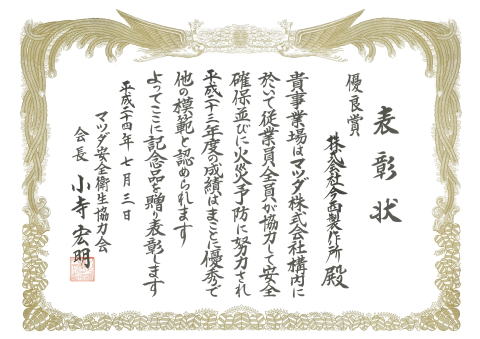 表彰状
優良賞
株式会社今西製作所殿
貴事業場はマツダ株式会社構内に
於いて従業員全員が協力して安全
確保並びに火災予防に努力され
平成二十三年度の成績はまことに優秀で
他の模範と認められます
よってここに記念品を贈り表彰します
平成二十四年七月三日
マツダ安全衛生協力会
会長 小寺宏明